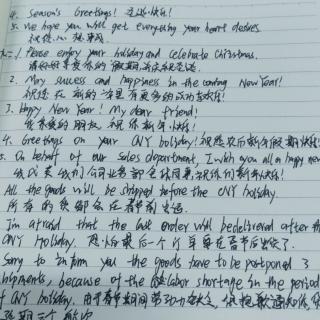 4. Season's Greetings! 圣诞快乐!
5. We hope you will get everything your heart desires.
祝您心想事成
1. Please enjoy your holiday and celebrate Christmas.
请你好好享受你的假期并庆祝圣诞
2. May success and happiness in the coming New Year!
祝您在新的一年里有更多的成功与快乐!
3. Happy New Year! My dear friend!
我亲爱的朋友,祝你新年快乐!
4. Greetings on your CNY holiday! 祝您农历新年假期快乐!
5. On behalf of our sales department, I wish you all a happy new
我代表我们公司业务部全体同事,祝你们新年快乐!
All the goods will be shipped before the CNY holiday.
所有的货都会在春节前出运
I'm afraid that the last order will be delivered after th
CNY holiday. 恐怕最后一个订单要在春节后出货了.
Sorry to inform you the goods have to be postponed 3
shipments, because of the labor shortage in the period
f CNY holiday. 由于春节期间劳动力缺乏, 很抱歉通知您
延期三个